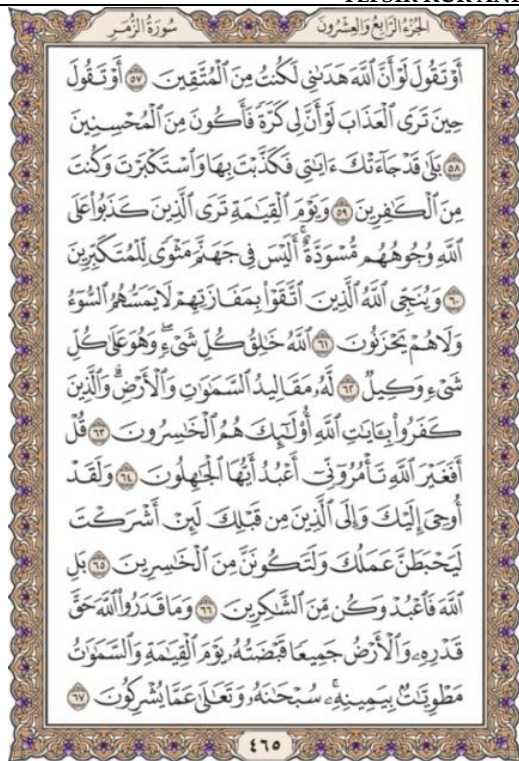 الجُزْءُ الرَّابِعُ وَالعِشْرُونَ سُورَةُ الزُّمَرِ
أَوْ تَقُولَ لَوْ أَنَّ ٱللَّهَ هَدَىٰنِي لَكُنتُ مِنَ ٱلْمُتَّقِينَ ۝٥٧ أَوْ تَقُولَ
حِينَ تَرَى ٱلْعَذَابَ لَوْ أَنَّ لِي كَرَّةً فَأَكُونَ مِنَ ٱلْمُحْسِنِينَ
۝٥٨ بَلَىٰ قَدْ جَآءَتْكَ ءَايَٰتِي فَكَذَّبْتَ بِهَا وَٱسْتَكْبَرْتَ وَكُنتَ
مِنَ ٱلْكَٰفِرِينَ ۝٥٩ وَيَوْمَ ٱلْقِيَٰمَةِ تَرَى ٱلَّذِينَ كَذَبُوا۟ عَلَى
ٱللَّهِ وُجُوهُهُم مُّسْوَدَّةٌ ۚ أَلَيْسَ فِي جَهَنَّمَ مَثْوًى لِّلْمُتَكَبِّرِينَ
۝٦٠ وَيُنَجِّي ٱللَّهُ ٱلَّذِينَ ٱتَّقَوْا۟ بِمَفَازَتِهِمْ لَا يَمَسُّهُمُ ٱلسُّوٓءُ
وَلَا هُمْ يَحْزَنُونَ ۝٦١ ٱللَّهُ خَٰلِقُ كُلِّ شَيْءٍ ۖ وَهُوَ عَلَىٰ كُلِّ
شَيْءٍ وَكِيلٌ ۝٦٢ لَّهُۥ مَقَالِيدُ ٱلسَّمَٰوَٰتِ وَٱلْأَرْضِ ۗ وَٱلَّذِينَ
كَفَرُوا۟ بِـَٔايَٰتِ ٱللَّهِ أُو۟لَٰٓئِكَ هُمُ ٱلْخَٰسِرُونَ ۝٦٣ قُلْ
أَفَغَيْرَ ٱللَّهِ تَأْمُرُوٓنِّيٓ أَعْبُدُ أَيُّهَا ٱلْجَٰهِلُونَ ۝٦٤ وَلَقَدْ
أُوحِيَ إِلَيْكَ وَإِلَى ٱلَّذِينَ مِن قَبْلِكَ لَئِنْ أَشْرَكْتَ
لَيَحْبَطَنَّ عَمَلُكَ وَلَتَكُونَنَّ مِنَ ٱلْخَٰسِرِينَ ۝٦٥ بَلِ
ٱللَّهَ فَٱعْبُدْ وَكُن مِّنَ ٱلشَّٰكِرِينَ ۝٦٦ وَمَا قَدَرُوا۟ ٱللَّهَ حَقَّ
قَدْرِهِۦ وَٱلْأَرْضُ جَمِيعًا قَبْضَتُهُۥ يَوْمَ ٱلْقِيَٰمَةِ وَٱلسَّمَٰوَٰتُ
مَطْوِيَّٰتٌۢ بِيَمِينِهِۦ ۚ سُبْحَٰنَهُۥ وَتَعَٰلَىٰ عَمَّا يُشْرِكُونَ ۝٦٧
٤٦٥